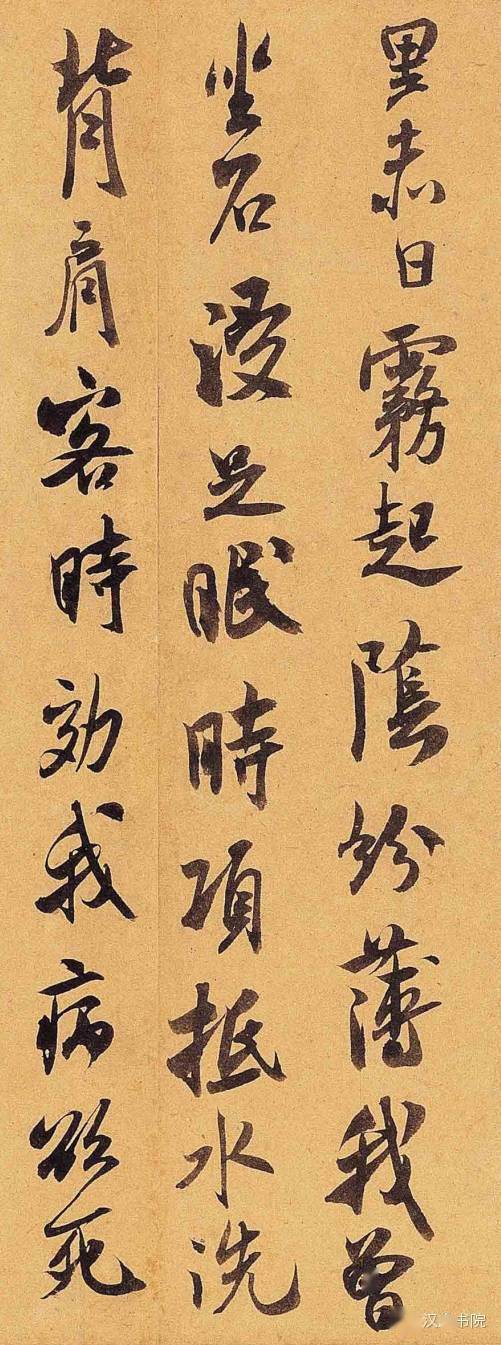 里赤日霧起陰紛薄我曾
坐石浸足眠時項抵水洗
背肩客時効我病欲死
汉·书院